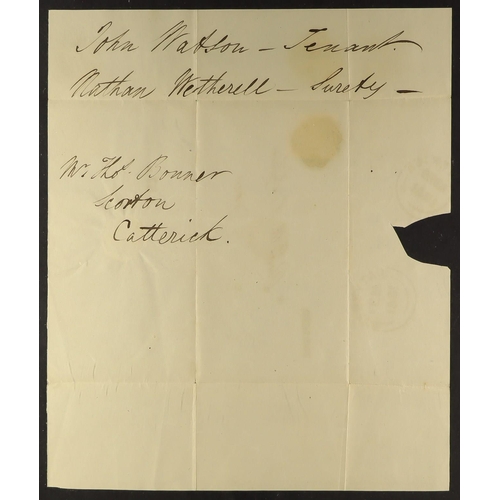 John Watson – Tenant.
Nathan Wetherell – Surety –
Mr. Thos. Bonner
Scorton
Catterick.